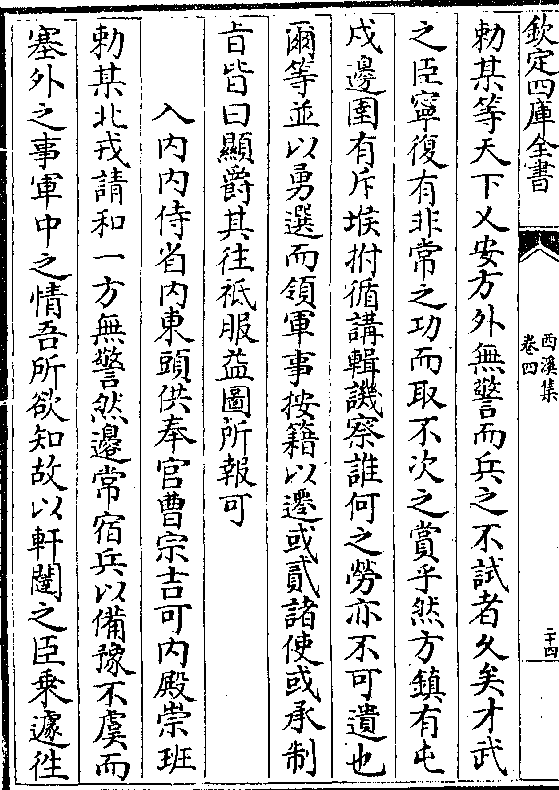 欽定四庫全書
西溪集
卷四
二十四
勅某等天下乂安方外無警而兵之不試者久矣才武
之臣寧復有非常之功而取不次之賞乎然方鎮有屯
戍邊圉有斥堠拊循講輯譏察誰何之勞亦不可遺也
爾等並以勇選而領軍事按籍以遷或貳諸使或承制
㫖皆曰顯爵其往祗服益圖所報可
入内内侍省内東頭供奉官曹宗吉可内殿崇班
勅某北戎請和一方無警然邊常宿兵以備豫不虞而
塞外之事軍中之情吾所欲知故以軒闥之臣乗遽徃